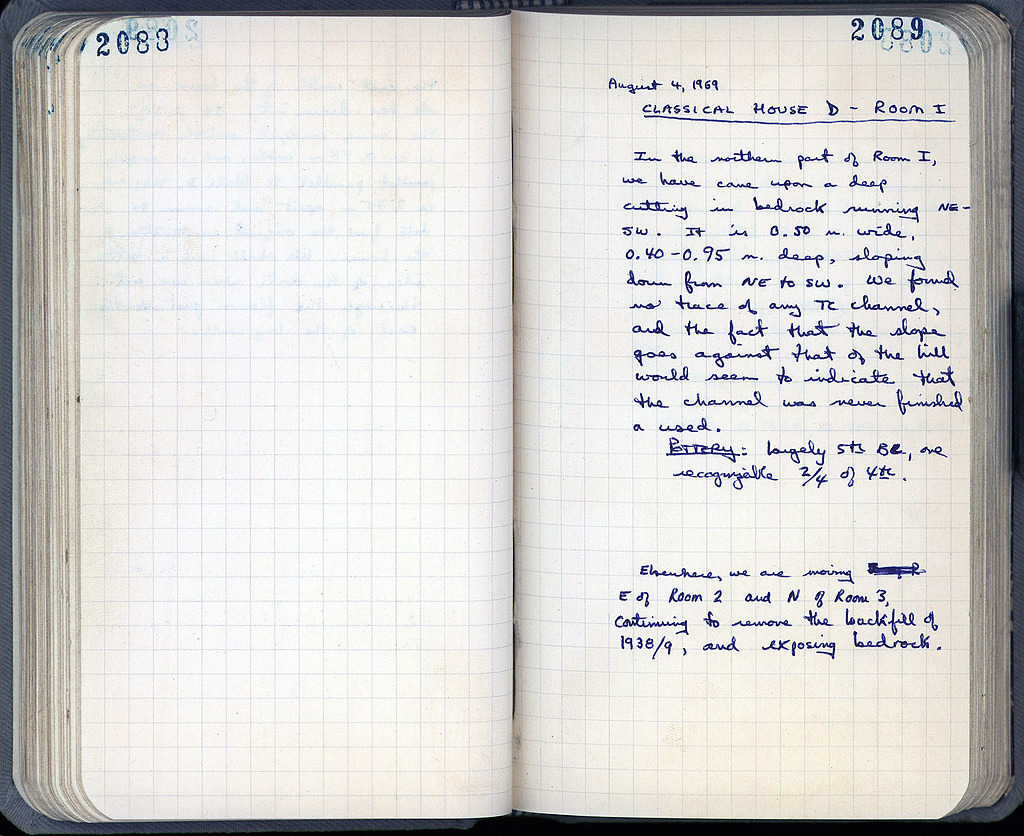 2088
2089
August 4, 1969
CLASSICAL HOUSE D - ROOM I
In the northern part of Room I,
we have come upon a deep
cutting in bedrock running NE-
SW. It is 0.50 m. wide,
0.40-0.95 m. deep, sloping
down from NE to SW. We found
no trace of any TC channel,
and the fact that the slope
goes against that of the hill
would seem to indicate that
the channel was never finished
or used.
POTTERY: largely 5th BC, one
recognizable 2/4 of 4th.
Elsewhere, we are moving
E of Room 2 and N of Room 3,
continuing to remove the backfill of
1938/9, and exposing bedrock.